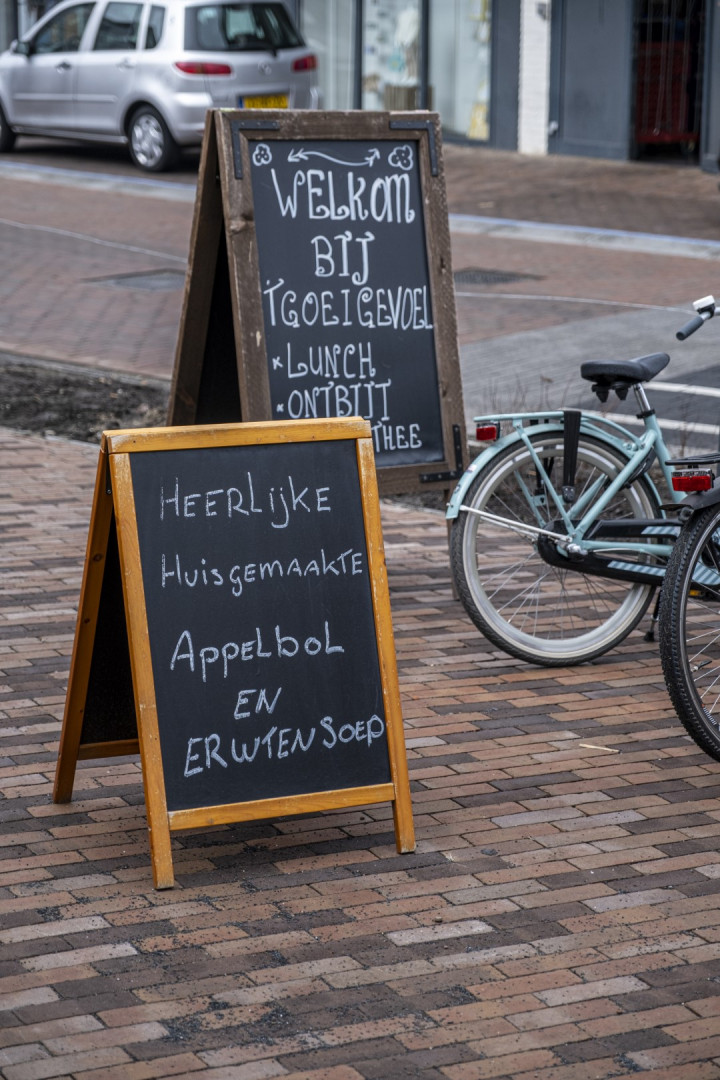 WELKOM
BIJ
'TGOEIGEVOEL
*LUNCH
*ONTBIJT
THEE
HEERLIJKE
HUISGEMAAKTE
APPELBOL
EN
ERWTENSOEP